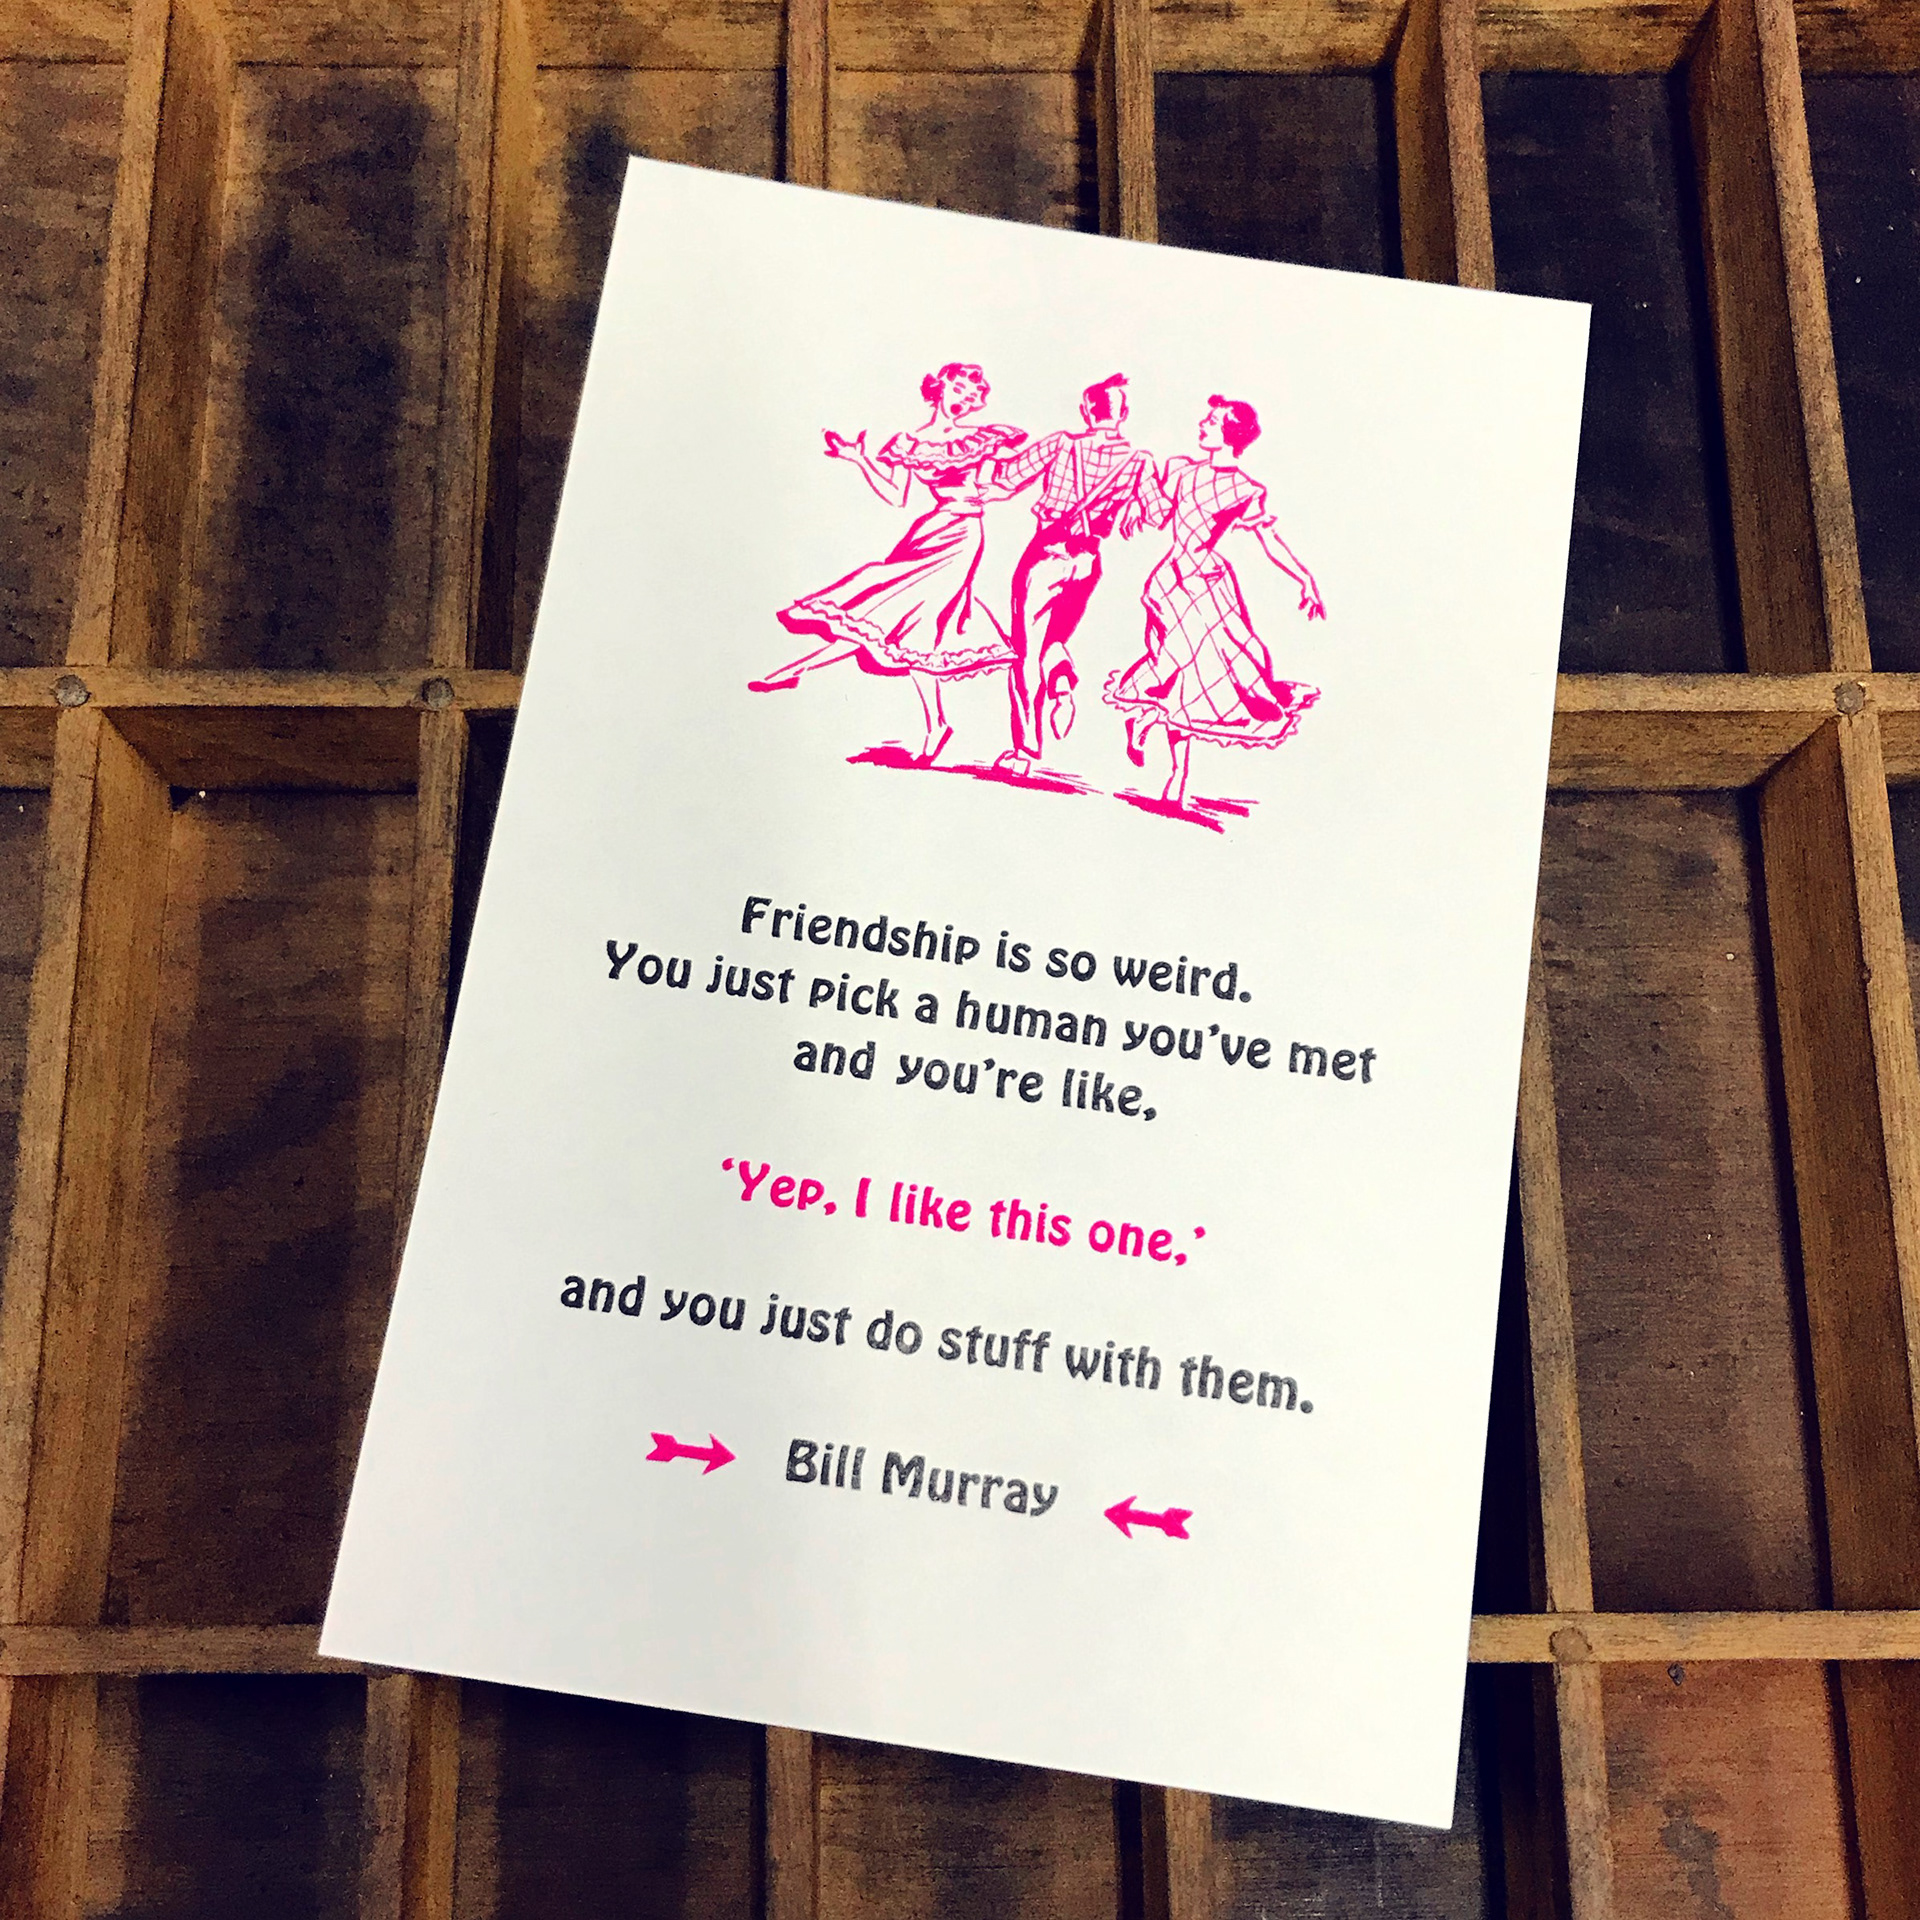 Friendship is so weird.
You just pick a human you’ve met
and you’re like,
‘Yep, I like this one,’
and you just do stuff with them.
Bill Murray